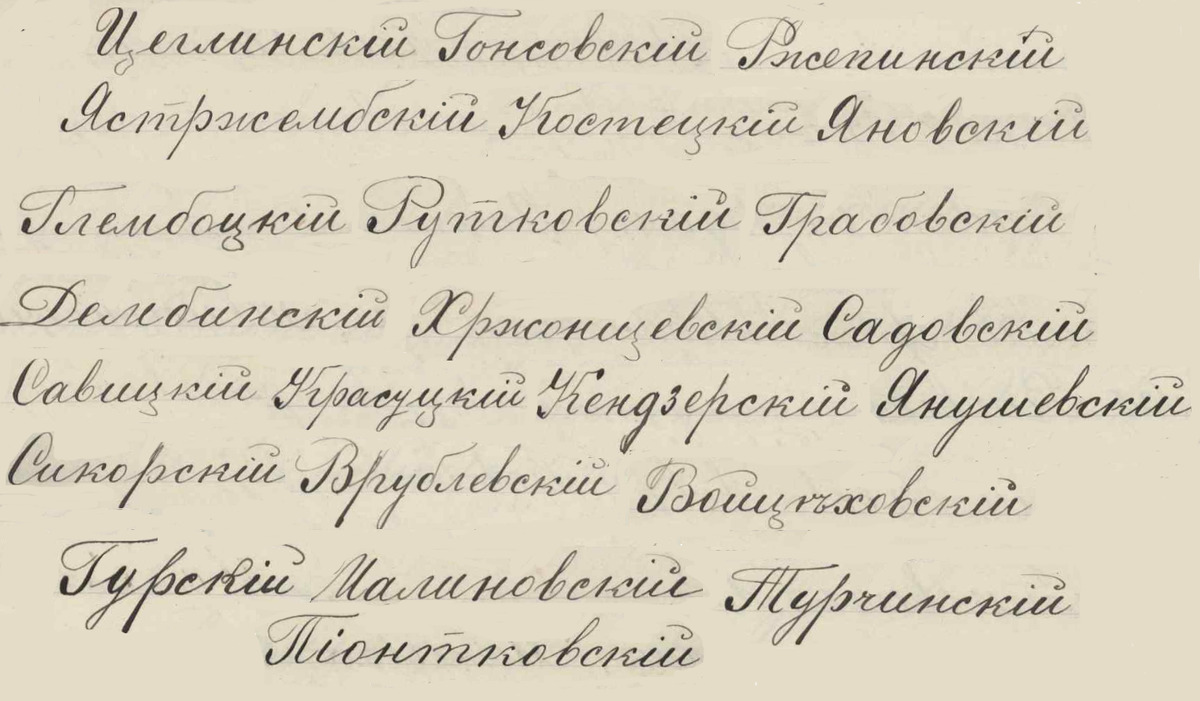 Цеглинскій Гонсовскій Ржепинскій
Ястржембскій Костецкій Яновскій
Глембоцкій Рутковскій Грабовскій
Дембинскій Хржонщевскій Садовскій
Савицкій Красуцкій Кендзерскій Янушевскій
Сикорскій Врублевскій Войцѣховскій
Гурскій Малиновскій Турчинскій
Піонтковскій